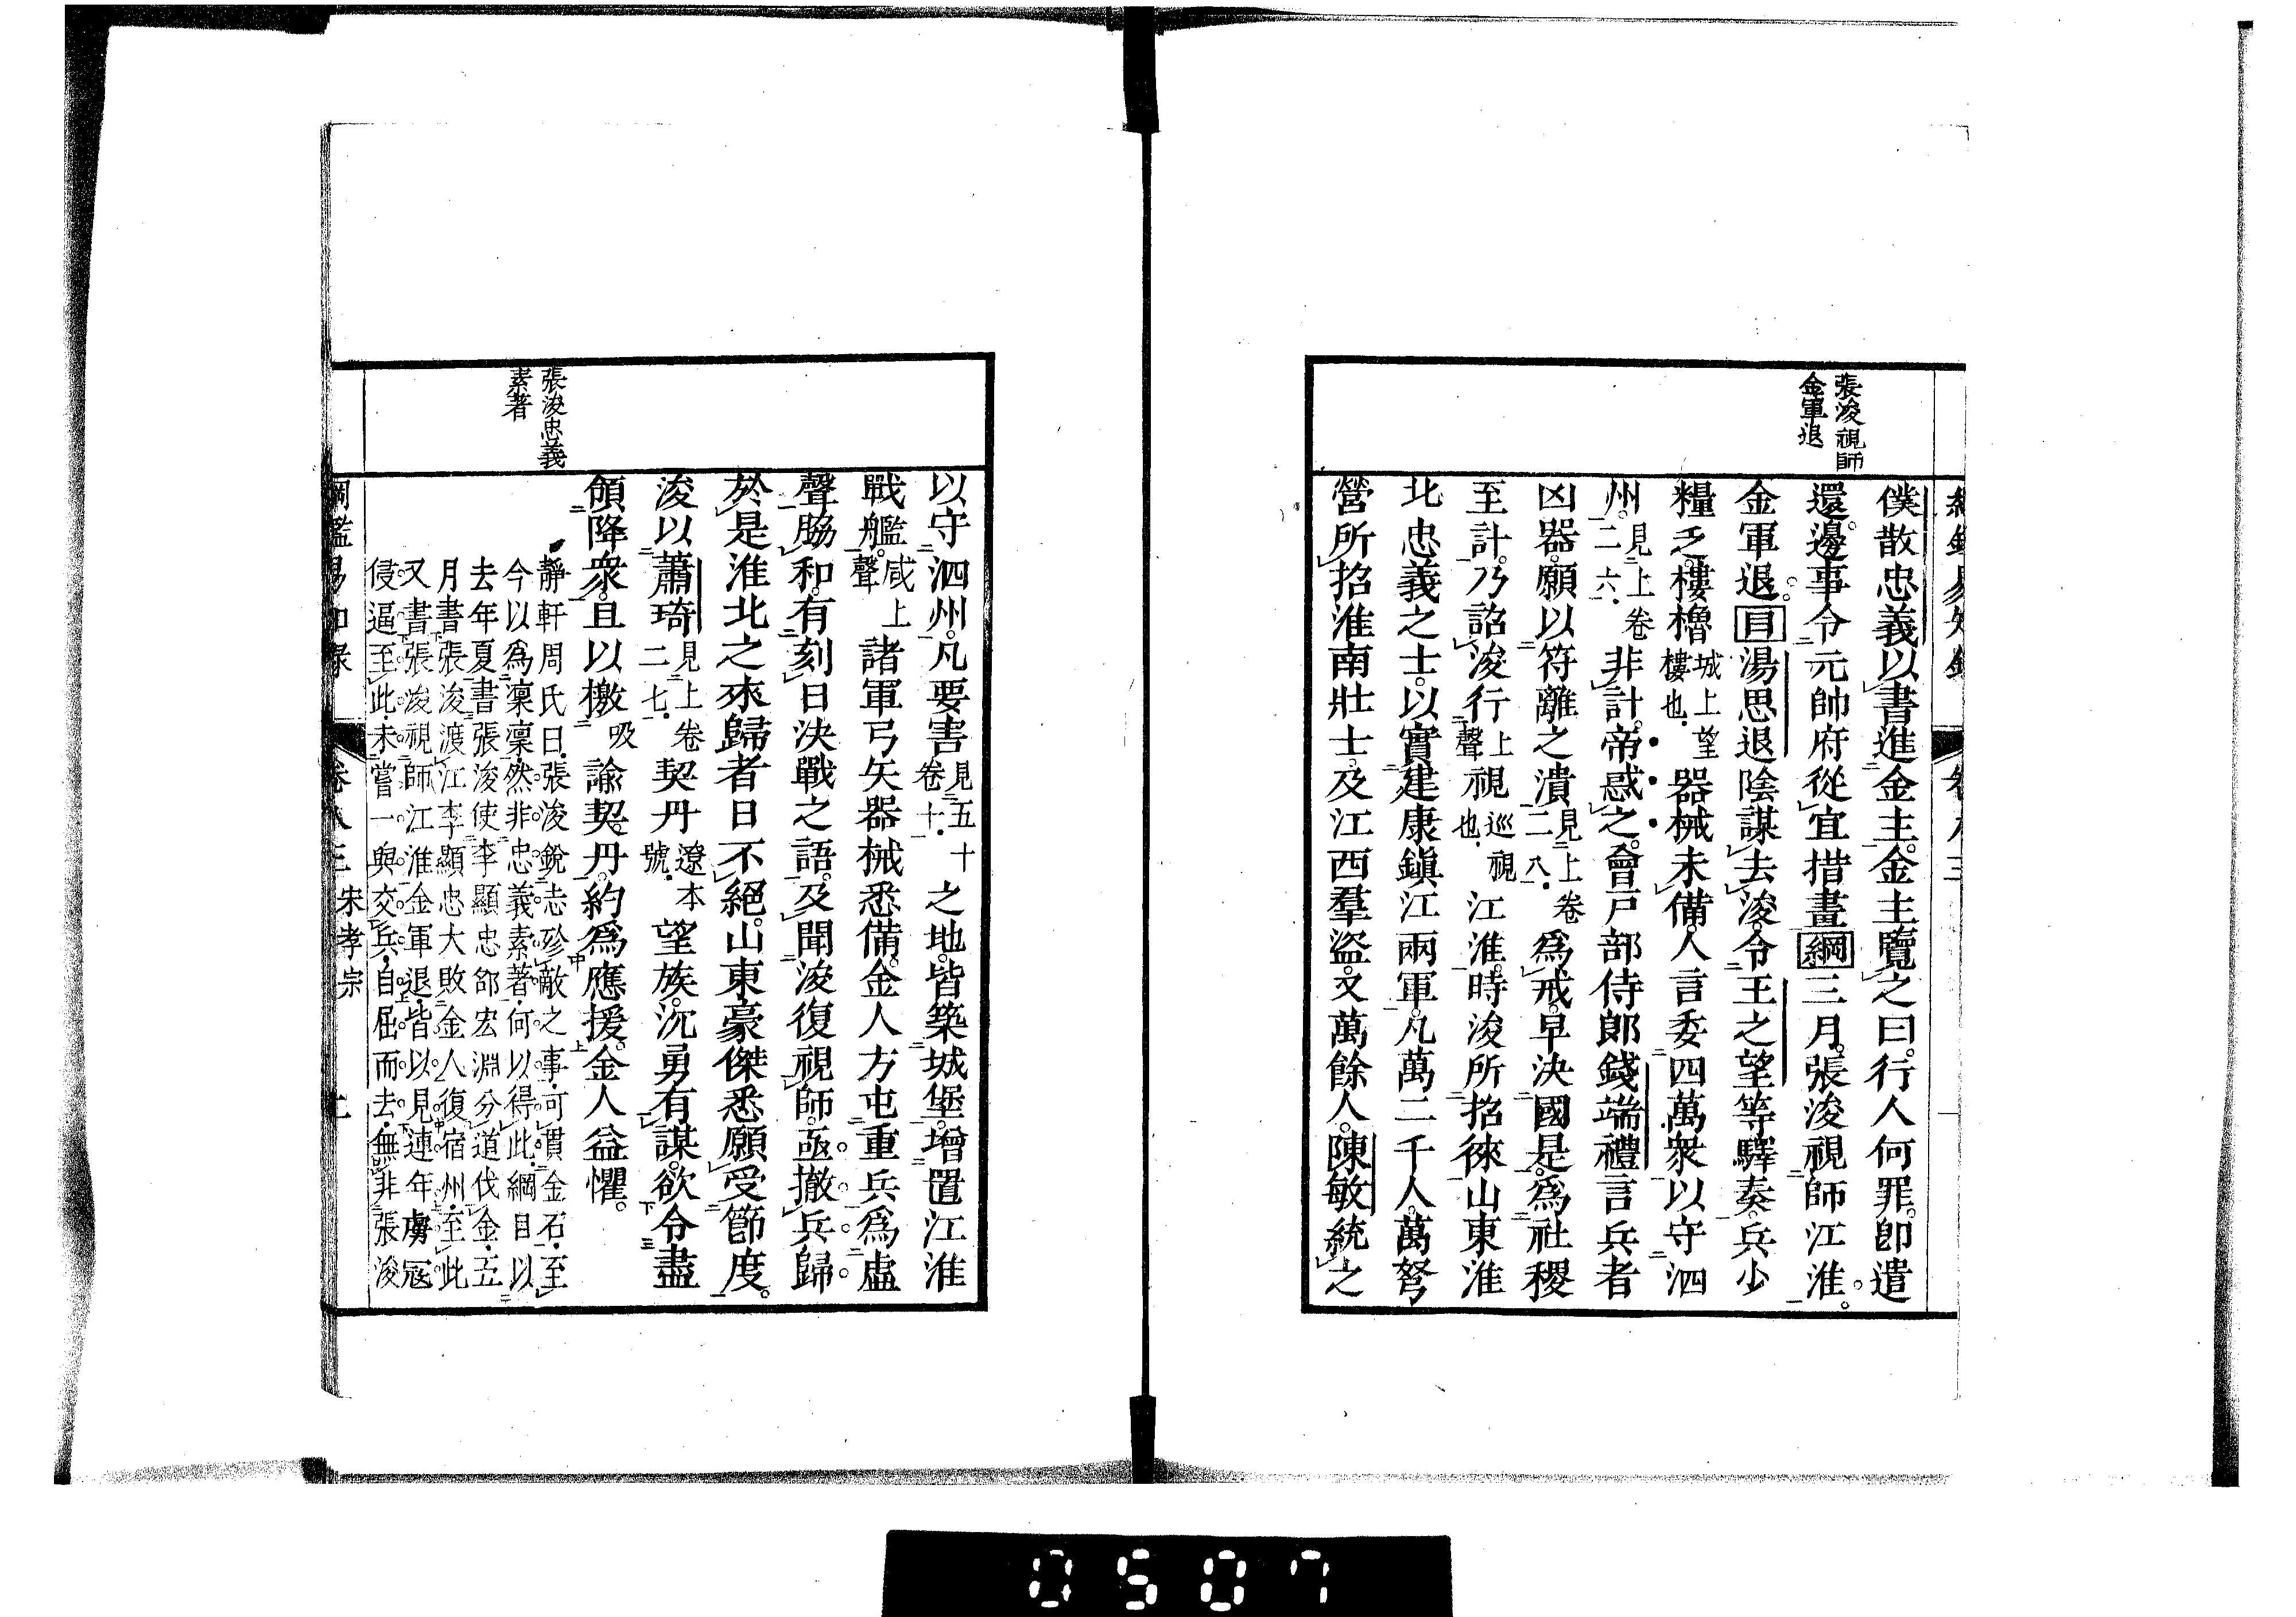 張浚視師
金軍退
僕散忠義以書進金主。金主覽之曰。行人何罪。卽遣
還。邊事令元帥府從宜措畫綱三月。張浚視師江淮。
金軍退。目湯思退陰謀去浚。令王之望等驛奏。兵少
糧乏。樓櫓城上望樓也。器械未備。人言委四萬衆以守泗
州。見上卷二六。非計。帝惑之。會戶部侍郎錢端禮言兵者
凶器。願以符離之潰見上卷二八。爲戒。早決國是。爲社稷
至計。乃詔浚行上聲視巡視也。江淮。時浚所招徠山東淮
北忠義之士。以實建康鎭江兩軍。凡萬二千人。萬弩
營所招淮南壯士。及江西羣盜。又萬餘人。陳敏統之
張浚忠義
素著
以守泗州。凡要害見五十卷十。之地。皆築城堡。增置江淮
戰艦。咸上聲諸軍弓矢器械悉備。金人方屯重兵。爲虛
聲脇和。有刻日決戰之語。及聞浚復視師。亟撤兵歸。
於是淮北之來歸者日不絕。山東豪傑悉願受節度。
浚以蕭琦見上卷二七。契丹遼本號。望族。沉勇有謀。欲令盡
領降衆。且以檄吸諭契丹。約爲應援。金人益懼。
靜軒周氏曰。張浚銳志殄敵之事。可貫金石。至
今以爲凜凜。然非忠義素著。何以得此。綱目以
去年夏書張浚使李顯忠邵宏淵分道伐金。五
月書張浚渡江李顯忠大敗金人復宿州。至此
又書張浚視師江淮金軍退。皆以見連年虜寇
侵逼至此。未嘗一與交兵。自屈而去。無非張浚
宋孝宗
0507